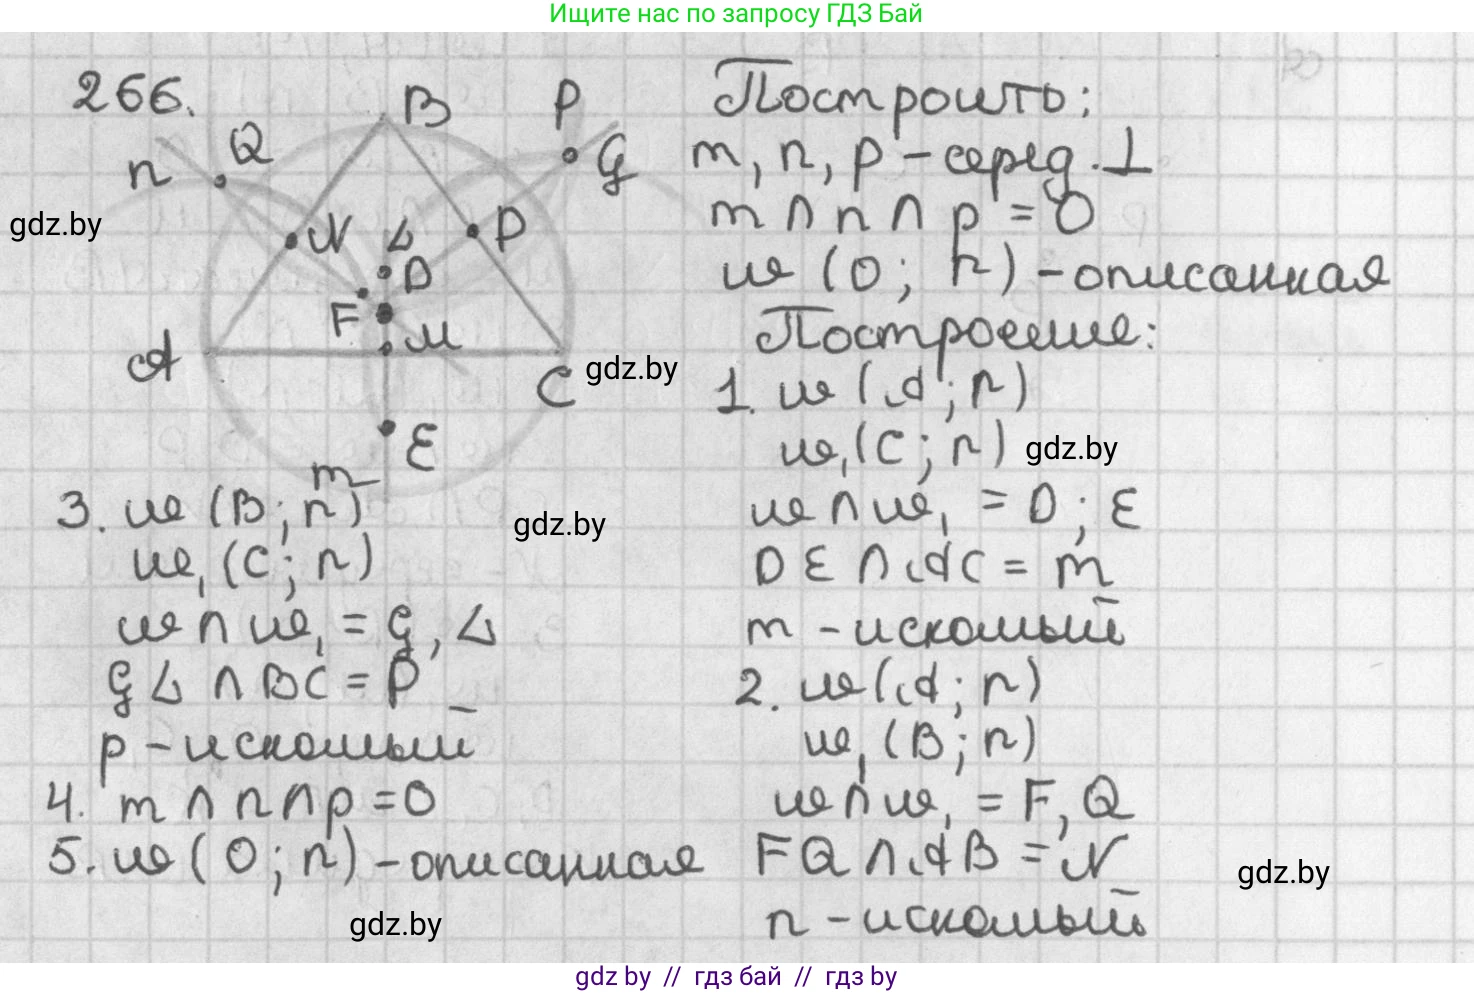 Ищите нас по запросу ГДЗ Бай
266.
B
P
Q
n
G
N
L
P
D
F
M
A
C
E
m
Построить:
m, n, p – серед. ⊥
m ∩ n ∩ p = O
ω (O; r) – описанная
Построение:
1. ω (A; r)
ω₁ (C; r)
ω ∩ ω₁ = D; E
DE ∩ AC = m
m – искомый
2. ω (A; r)
ω₁ (B; r)
ω ∩ ω₁ = F, Q
FQ ∩ AB = N
n – искомый
3. ω (B; r)
ω₁ (C; r)
ω ∩ ω₁ = G, L
GL ∩ BC = P
p – искомый
4. m ∩ n ∩ p = O
5. ω (O; r) – описанная
gdz.by
gdz.by
gdz.by
gdz.by
gdz.by
gdz.by
gdz by // гдз бай // гдз by